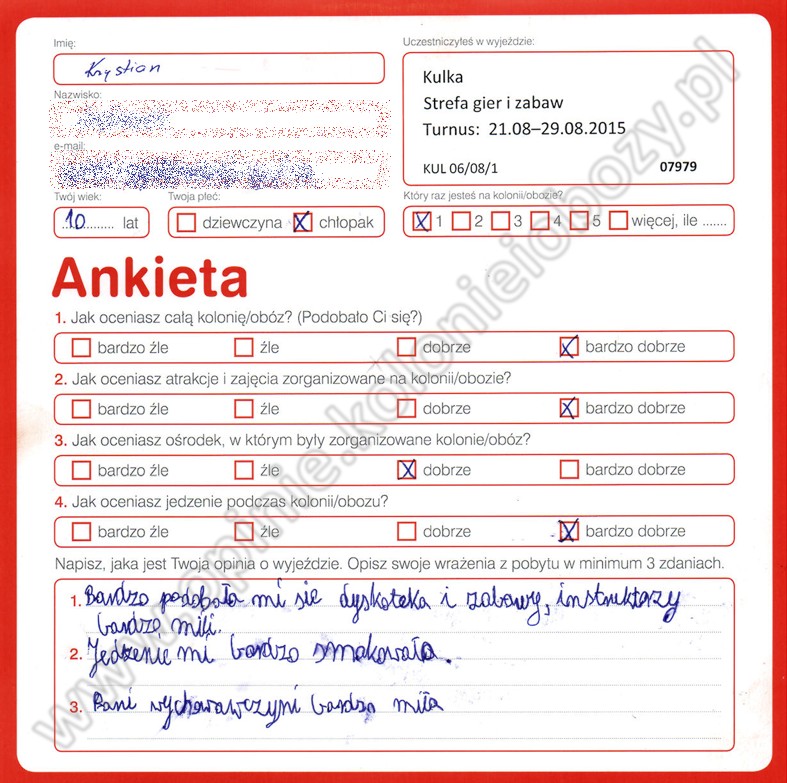 Imię:
Krystian
Nazwisko:
e-mail:
Twój wiek:
10 lat
Twoja płeć:
dziewczyna X chłopak
Uczestniczyłeś w wyjeździe:
Kulka
Strefa gier i zabaw
Turnus: 21.08–29.08.2015
KUL 06/08/1 07979
Który raz jesteś na kolonii/obozie?
X 1 2 3 4 5 więcej, ile .......
Ankieta
1. Jak oceniasz całą kolonię/obóz? (Podobało Ci się?)
bardzo źle źle dobrze X bardzo dobrze
2. Jak oceniasz atrakcje i zajęcia zorganizowane na kolonii/obozie?
bardzo źle źle dobrze X bardzo dobrze
3. Jak oceniasz ośrodek, w którym były zorganizowane kolonie/obóz?
bardzo źle źle X dobrze bardzo dobrze
4. Jak oceniasz jedzenie podczas kolonii/obozu?
bardzo źle źle dobrze X bardzo dobrze
Napisz, jaka jest Twoja opinia o wyjeździe. Opisz swoje wrażenia z pobytu w minimum 3 zdaniach.
1. Bardzo podobała mi sie dyskoteka i zabawy, instruktorzy
bardzo mili.
2. Jedzenie mi bardzo smakowało.
3. Pani wychowawczyni bardzo miła
www.opinie.kolonieiobozy.pl